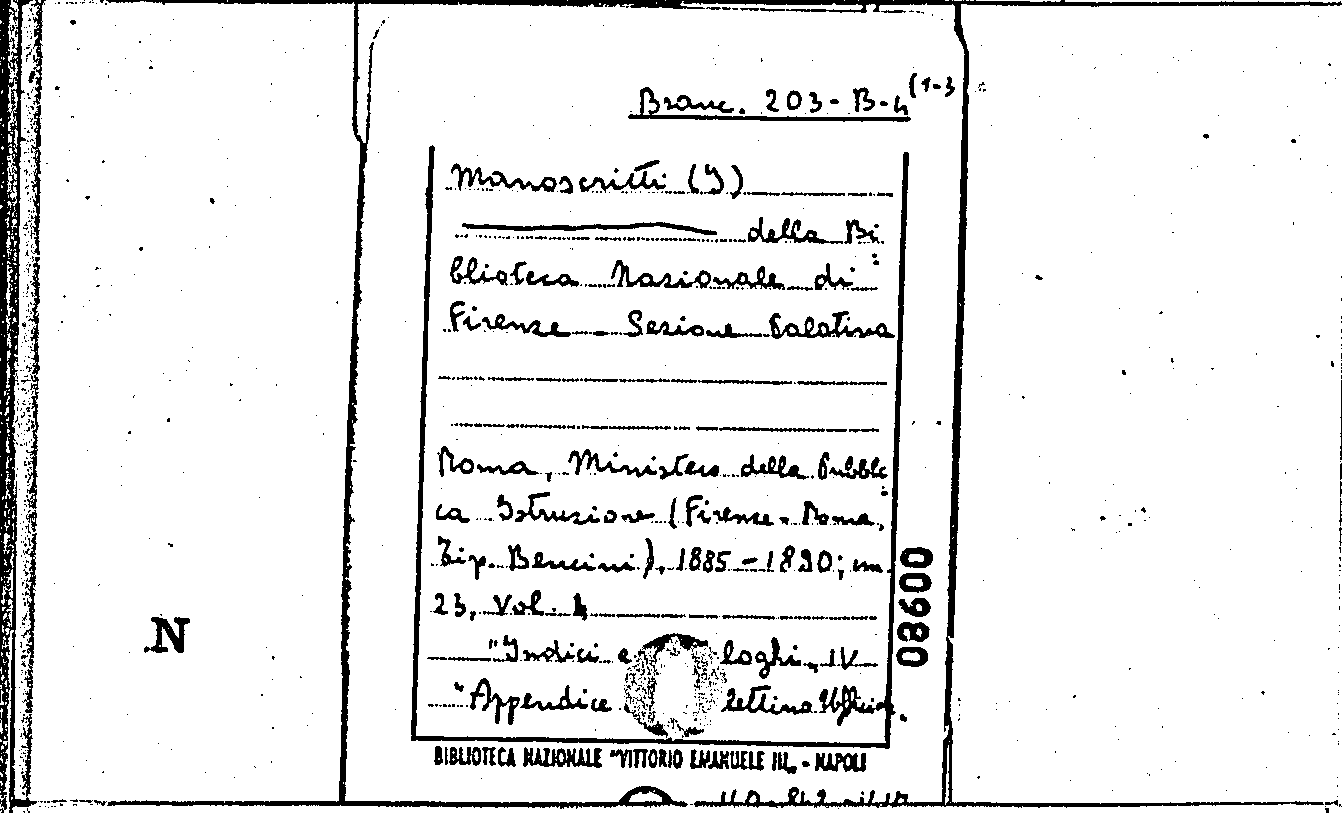 Branc. 203-B-4 (1-3
Manoscritti (I)
della Bi
blioteca Nazionale di
Firenze - Sezione Palatina
Roma, Ministero della Pubbli
ca Istruzione (Firenze-Roma,
Tip. Bencini), 1885-1890; cm.
23, Vol. 4
"Indici e loghi" IV
"Appendice lettino Ufficia
08600
N
BIBLIOTECA NAZIONALE "VITTORIO EMANUELE III" - NAPOLI